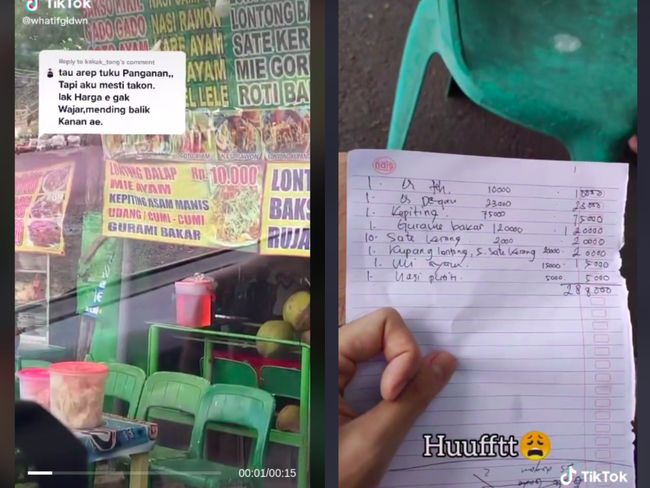 TikTok
@whatifgldwn
Reply to kakak_tong's comment
tau arep tuku Panganan,,
Tapi aku mesti takon.
lak Harga e gak
Wajar,mending balik
Kanan ae.
GADO GADO
NASI RAWON
LONTONG BA
SATE KER
AYAM
MIE GOR
EL LELE
ROTI BA
LONTONG BALAP
Rp. 10.000
MIE AYAM
KEPITING ASAM MANIS
UDANG / CUMI - CUMI
GURAMI BAKAR
LONT
BAKS
RUJA
00:01/00:15
1. Es Teh. 10000 10000
1. Es Degan 23000 23000
1. Kepiting. 75000 75000
1. Gurame bakar 120000 120000
10. Sate kerang 2000 20000
1. Kupang lontong, 5. Sate kerang 20000 20000
1. Mi ayam 15000 15000
1. Nasi putih. 5000 5000
288000
Huufftt
TikTok